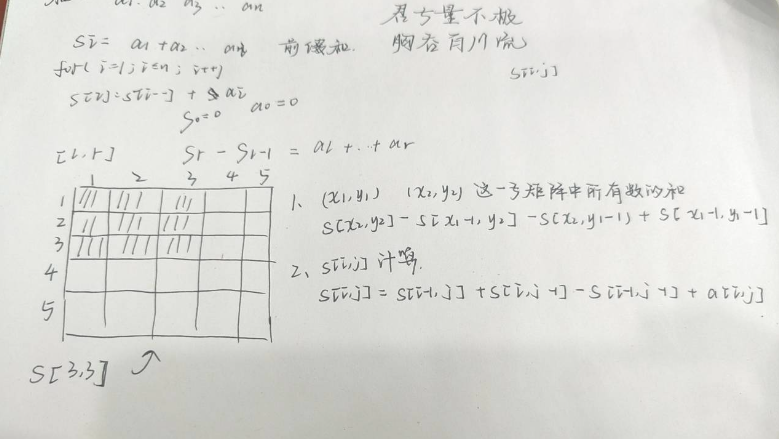 a1 a2 a3 ... an
君子量不极
胸吞百川流
Si = a1 + a2 ... ai 前缀和.
S[i,j]
for( i=1; i≤n; i++)
S[i]=S[i-1] + ai
S0=0 a0=0
[l,r] Sr - Sl-1 = al + ... + ar
1 2 3 4 5
1
2
3
4
5
1、(x1,y1) (x2,y2) 这一子矩阵中所有数的和
S[x2,y2] - S[x1-1,y2] - S(x2,y1-1) + S[x1-1,y1-1]
2、S[i,j] 计算.
S[i,j] = S[i-1,j] + S[i,j-1] - S[i-1,j-1] + a[i,j]
S[3,3]